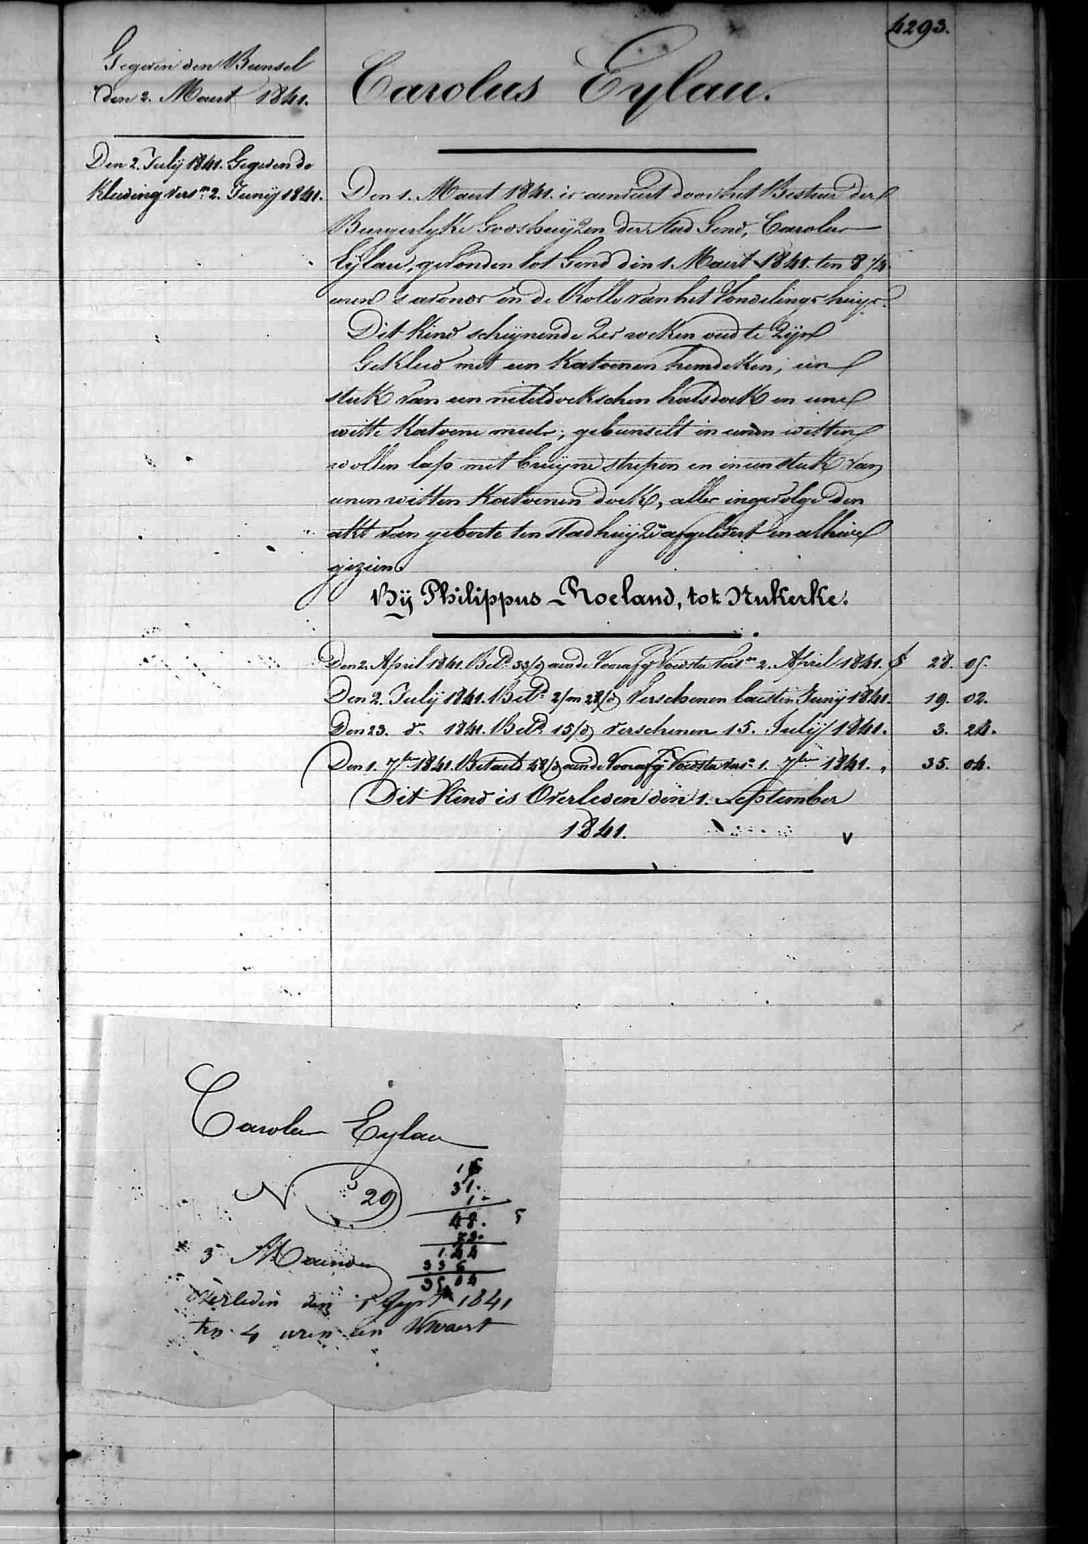 4293.
Gegeven den Bunsel
den 2. Maert 1841.
Den 2. Julij 1841. Gegeven de
Kleeding vers.n 2. Junij 1841.
Carolus Eylau.
Den 1. Maert 1841. is aenveert door het Bestuer der
Burgerlyke Godshuijzen der Stad Gend, Carolus
Eylau, gevonden tot Gend den 1. Maert 1841. ten 8 1/4
uren s'avonds in de Rolle van het Vondelings huijs.
Dit Kind schijnende zes weken oud te zijn
Gekleed met een Katoenen hemdeken, een
stuk van een neteldoekschen halsdoek en eene
witte Katoene muts, gebunselt in eenen witten
wollen lap met bruijne strepen en in een stuk van
eenen witten Katoenen doek, alles ingevolge den
akt van geboorte ten Stadhuijze afgelevert en alhier
gezien.
Bÿ Philippus Roeland, tot Nukerke.
Den 2. April 1841. Bet.d 33/d aende Voorafg.e Voedster vers.n 2. April 1841. f 28. 05.
Den 2. Julij 1841. Bet.d 2/m 28/d Verschenen laesten Junij 1841. 19. 02.
Den 23. d.o 1841. Bet.d 15/d verschenen 15. Julij 1841. 3. 24.
Den 1. 7ber 1841. Betaeld 48/d aende Voorafg.e Voedster vers.n 1. 7ber 1841. 35. 04.
Dit Kind is Overleden den 1. September
1841.
Carolus Eylau
N 29
16
31.
1-
48.
73.
144
336
35,04
5 Maenden
overleden den 1 Sept 1841
ten 4 uren een Kwaert